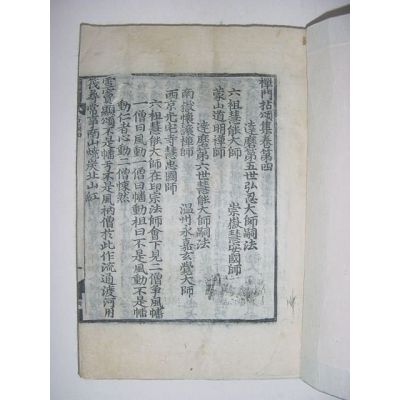 禪門拈頌集卷第四
達磨第五世弘忍大師嗣法
六祖慧能大師 崇嶽慧安國師
蒙山道明禪師
達磨第六世慧能大師嗣法
南嶽懷讓禪師 溫州永嘉玄覺大師
西京光宅寺慧忠國師
六祖慧能大師在印宗法師會下見二僧爭風幡一
僧曰風動一僧曰幡動祖曰不是風動不是幡
動仁者心動二僧悚然
雪竇顯頌不是幡兮不是風衲僧於此作流通渡河用
筏尋常事南山燒炭北山紅